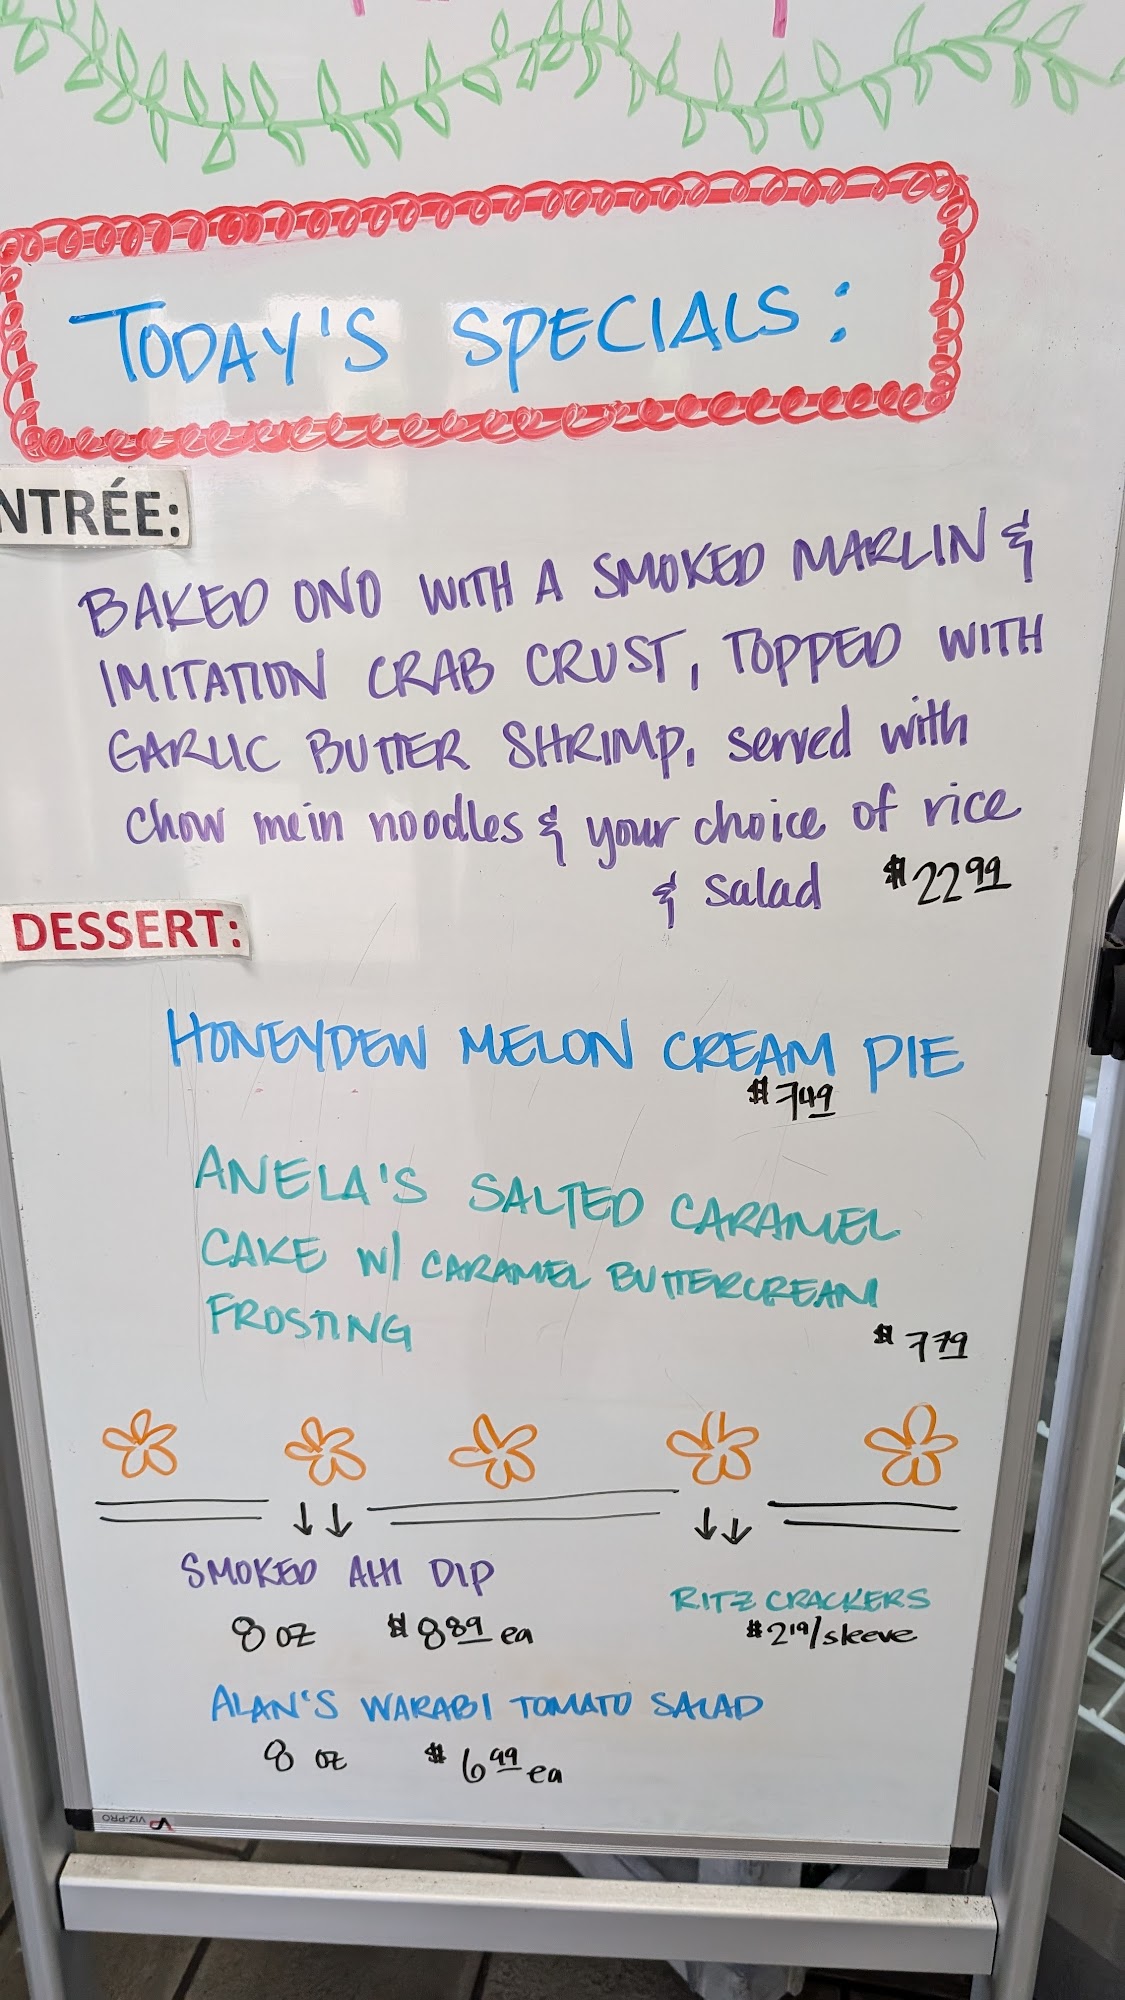 TODAY'S SPECIALS:
NTRÉE:
BAKED ONO WITH A SMOKED MARLIN &
IMITATION CRAB CRUST, TOPPED WITH
GARLIC BUTTER SHRIMP. served with
chow mein noodles & your choice of rice
& salad $22.99
DESSERT:
HONEYDEW MELON CREAM PIE
$7.49
ANELA'S SALTED CARAMEL
CAKE W/ CARAMEL BUTTERCREAM
FROSTING
$7.79
SMOKED AHI DIP
8 oz $8.89 ea
RITZ CRACKERS
$2.19/sleeve
ALAN'S WARABI TOMATO SALAD
8 oz $6.99 ea
VIZ-PRO